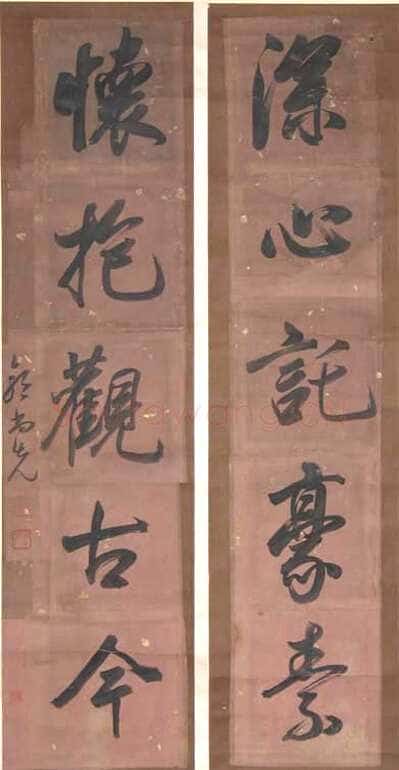 深心託豪素
懷抱觀古今